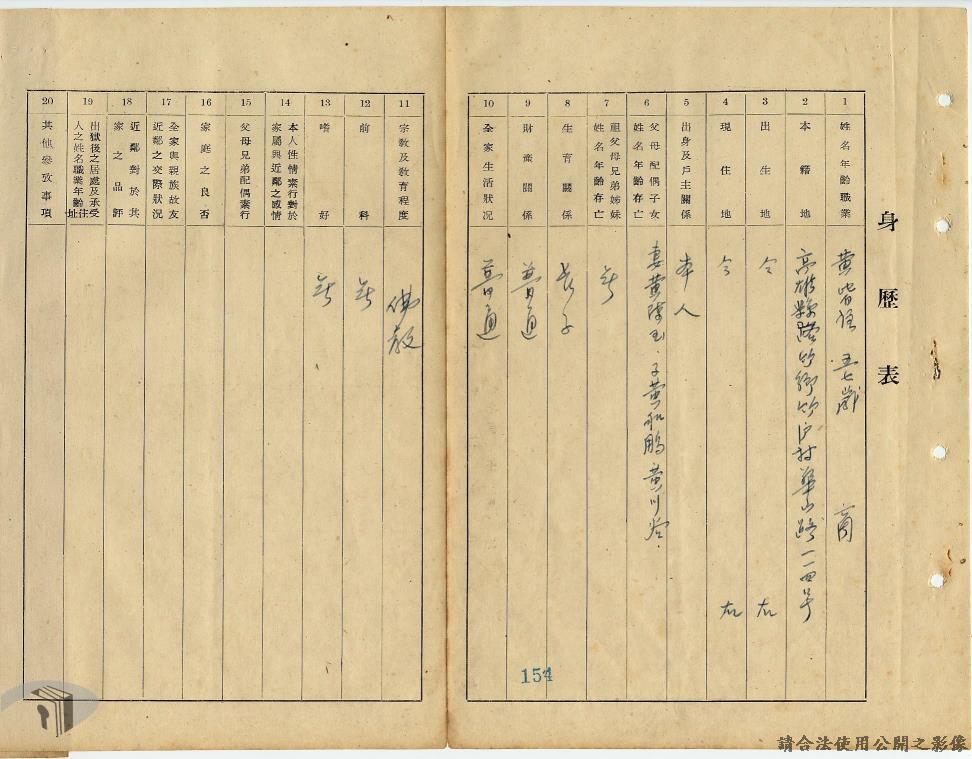 身歷表
1
姓名年齡職業
黃皆得 五七歲 商
2
本籍地
高雄縣路竹鄉竹滬村華山路一一四号
3
出生地
仝右
4
現住地
仝右
5
出身及戶主關係
本人
6
父母配偶子女
姓名年齡存亡
妻黃陳玉．子黃和鵬 黃川
7
祖父母兄弟姊妹
姓名年齡存亡
無
8
生育關係
長子
9
財產關係
普通
10
全家生活狀況
普通
11
宗教及教育程度
佛教
12
前科
無
13
嗜好
無
14
本人性情素行對於
家屬與近鄰之感情
15
父母兄弟配偶素行
16
家庭之良否
17
全家與親族故友
近鄰之交際狀況
18
近鄰對於其
家之品評
19
出獄後之居處及承受
人之姓名職業年齡住址
20
其他參攷事項
154
請合法使用公開之影像